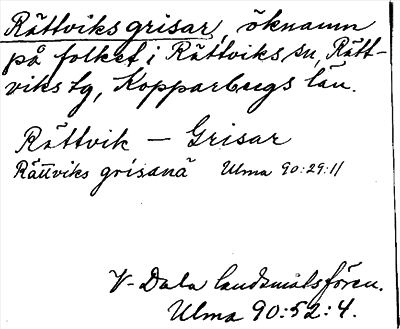 Rättviks grisar, öknamn
på folket i Rättviks sn, Rätt-
viks tg, Kopparbergs län.
Rättvik — Grisar
Rättviks grisanä Ulma 90:29:11
V-Dala landsmålsfören.
Ulma 90:52:4.